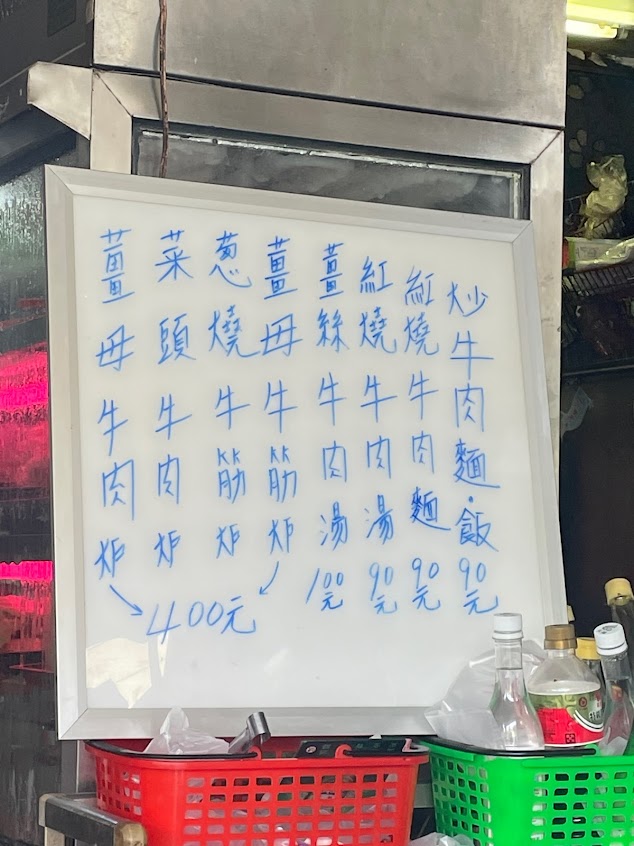 炒牛肉麵·飯90元
紅燒牛肉麵90元
紅燒牛肉湯90元
薑絲牛肉湯100元
薑母牛筋炉
葱燒牛筋炉
菜頭牛肉炉
薑母牛肉炉
400元